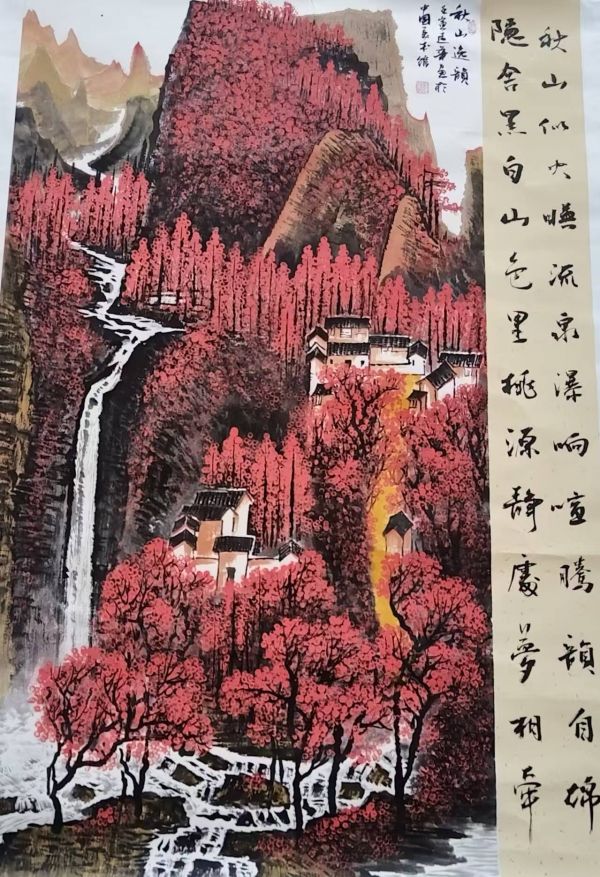 秋山似火流泉瀑响喧腾韻自绵
隐舍黑白山色里桃源静處夢相牵
秋山逸韻
壬寅画於
中國美术馆